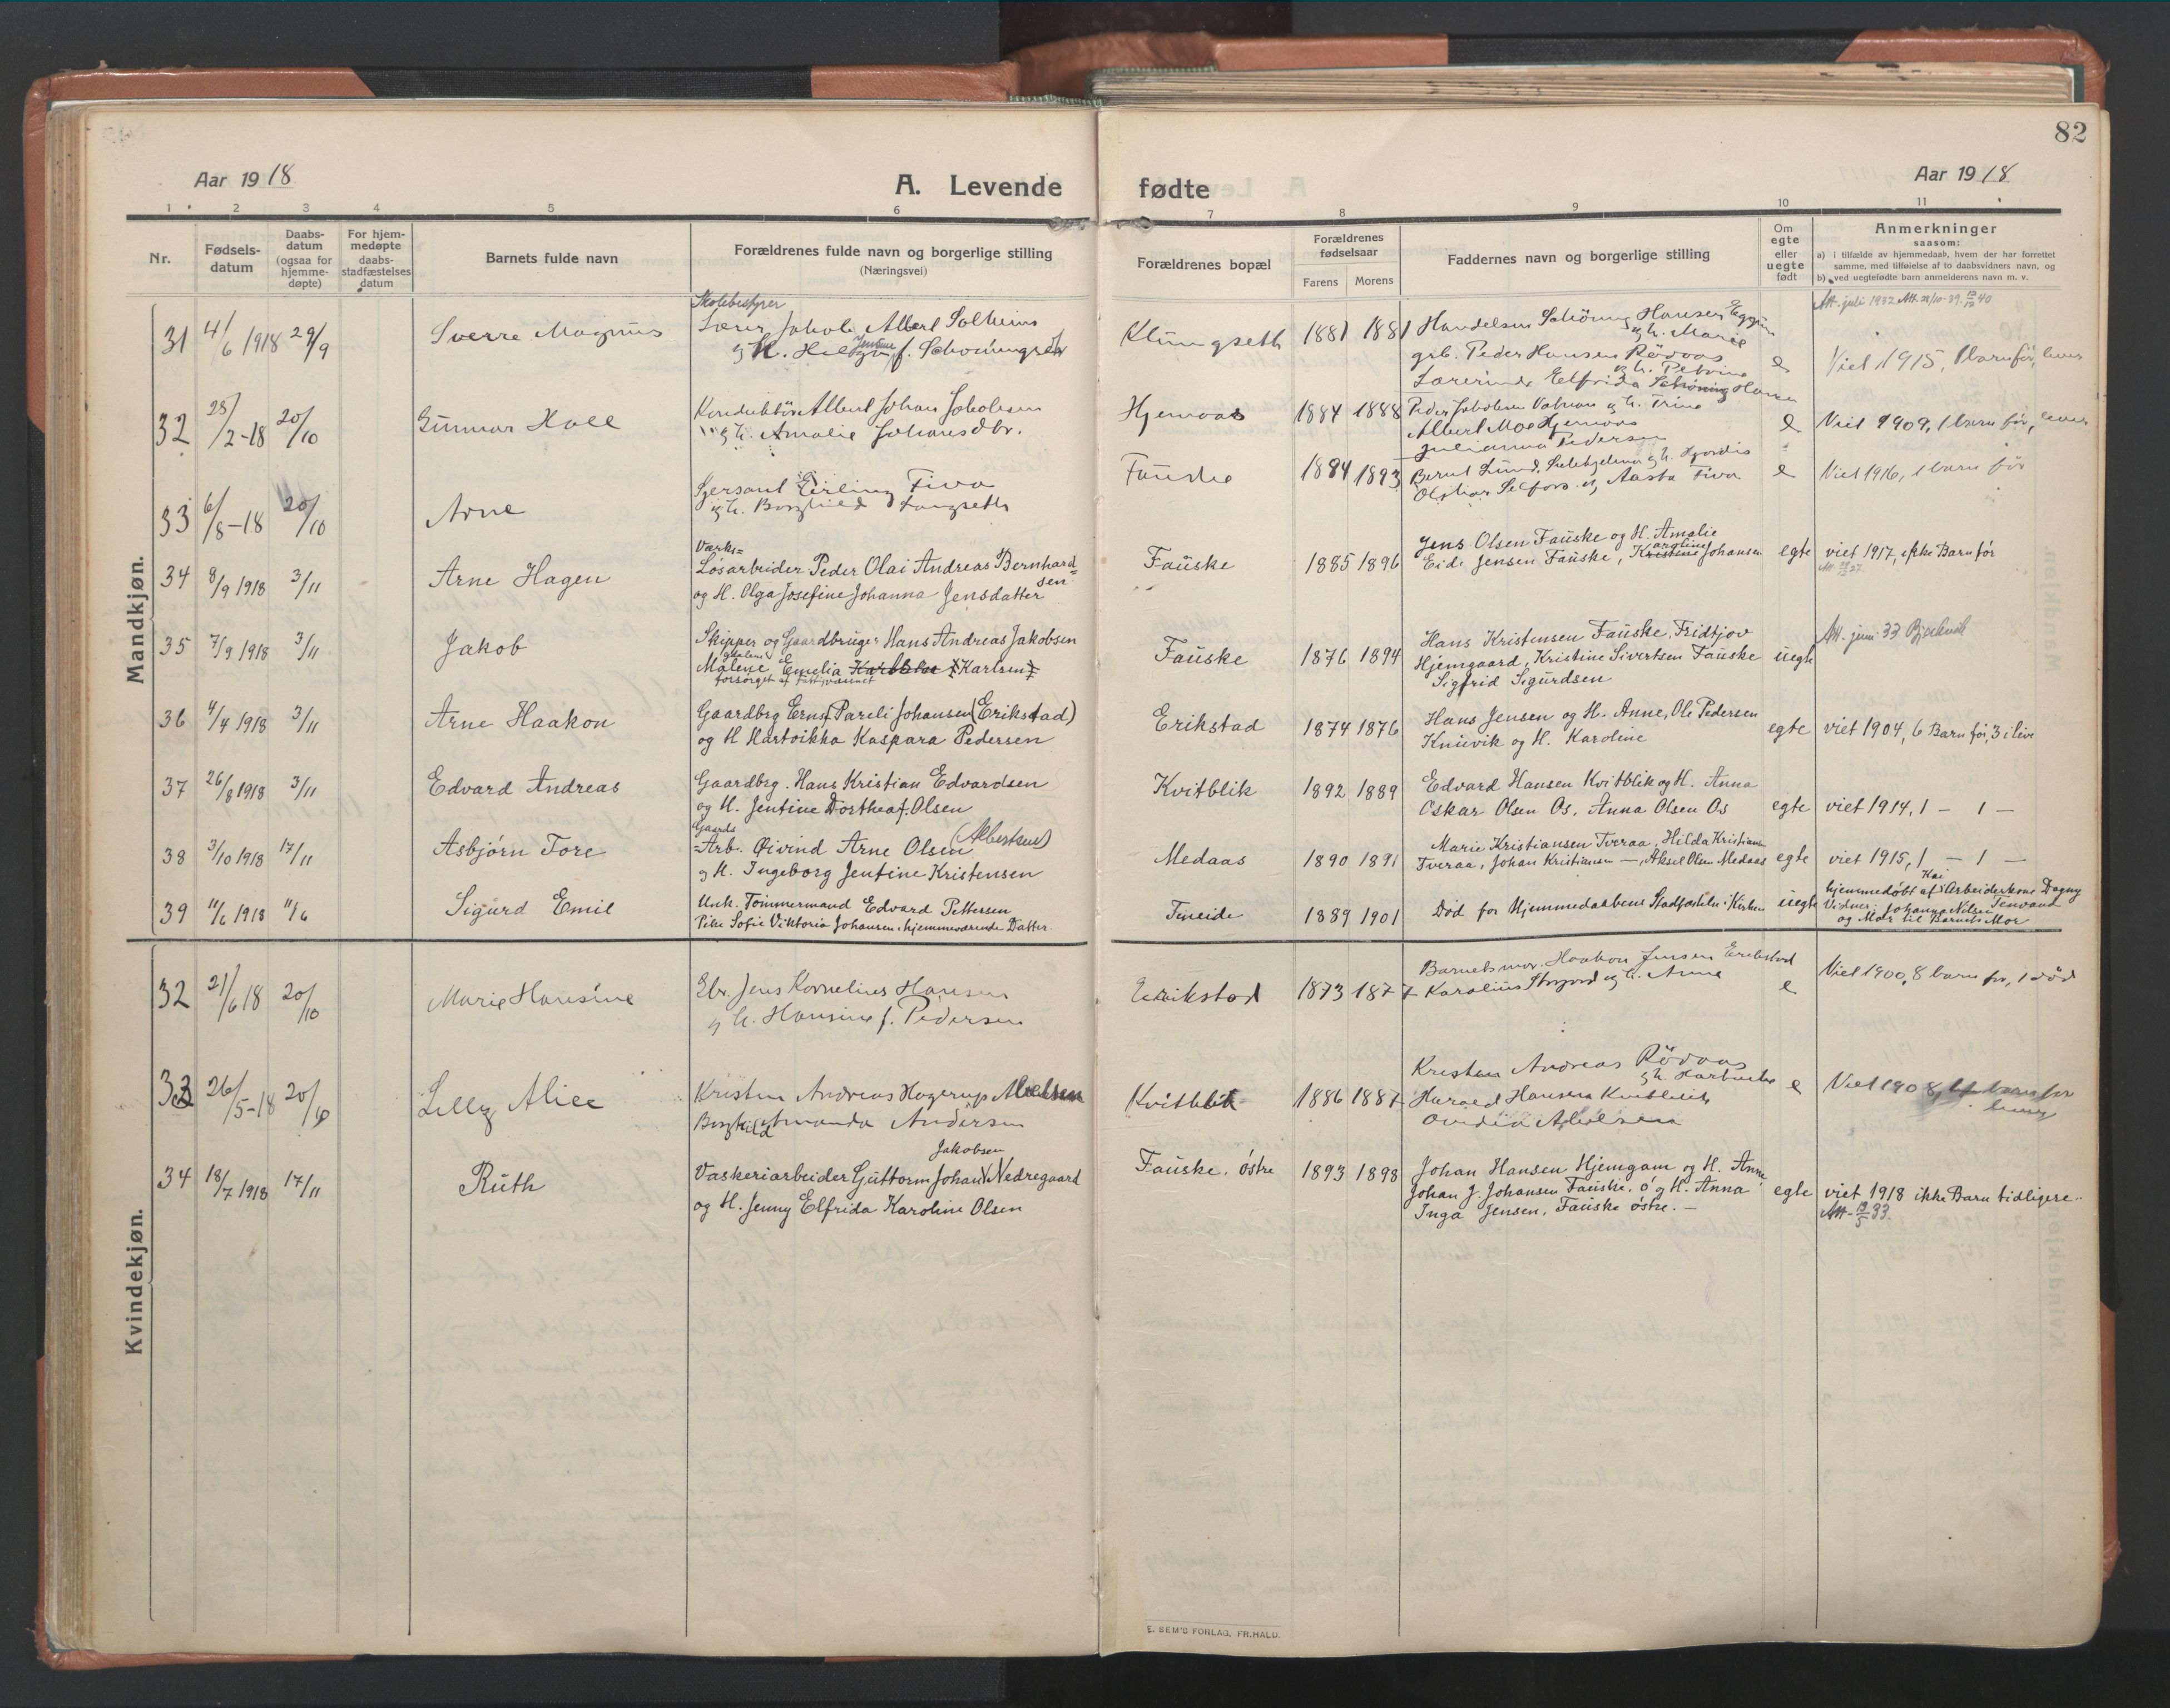 82
Aar 1918
A. Levende
fødte
Aar 1918
1 2 3 4 5 6 7 8 9 10 11
Nr.
Fødsels-
datum
Daabs-
datum
(ogsaa for
hjemme-
døpte)
For hjem-
medøpte
daabs-
stadfæstelses
datum
Barnets fulde navn
Forældrenes fulde navn og borgerlige stilling
(Næringsvei)
Forældrenes bopæl
Forældrenes
fødselsaar
Farens Morens
Faddernes navn og borgerlige stilling
Om
egte
eller
uegte
født
Anmerkninger
saasom:
a) i tilfælde av hjemmedaab, hvem der har forrettet
samme, med tilføielse af to daabsvidners navn, og
b) ved uegtefødte barn anmelderens navn m. v.
Mandkjøn.
31 4/6 1918 29/9 Sverre Magnus
Skolebestyrer
Lærer Jakob Albert Solheim
og H. Helga Jentine f.
Klungseth 1881 1881
Handelsm Schöning Hansen
og h. Marie
grb. Peder Hansen Rövaas
og h. Petrine
Lærerinde Elfrida Schöning Hansen
e
Viet 1915, 1 barn før, lever
32 28/2-18 20/10 Gunnar Hall
Konduktör Albert Johan Jakobsen
og h. Amalie Johansdtr.
Hjemaas 1884 1888
Peder Jakobsen og h. Trine
Albert Moe Hjemaas
Julianna Pedersen
e
Viet 1909, 1 barn før, lever
33 6/8-18 20/10 Arne
Sersant Erling Tiva
og h. Borghild Langseth
Fauske 1884 1893
Bernt Lund, og h. Hjordis
Selfors og Aasta Tiva
e
Viet 1916, 1 barn før
34 8/9 1918 3/11 Arne Hagen
Værks=
Løsarbeider Peder Olai Andreas Bernhard=
sen
og H. Olga Josefine Johanna Jensdatter
Fauske 1885 1896
Jens Olsen Fauske og H. Amalie
Eide Jensen Fauske, Kristine Johansen
egte
viet 1917, ikke Barn før
35 7/9 1918 3/11 Jakob
Skipper og Gaardbruger Hans Andreas Jakobsen
Malene Emelia Karlsen
forsørget af Fattigvæsnet
Fauske 1876 1894
Hans Kristensen Fauske, Fridtjov
Hjemgaard, Kristine Sivertsen Fauske
Sigfrid Sigurdsen
uegte
Att. juni 33
36 4/4 1918 3/11 Arne Haakon
Gaardbrg Ernst Pareli Johansen (Erikstad)
og H Hartvikka Kaspara Pedersen
Erikstad 1874 1876
Hans Jensen og H. Anne, Ole Pedersen
Knuvik og H. Karoline
egte
viet 1904, 6 Barn før, 3 i live
37 26/8 1918 3/11 Edvard Andreas
Gaardbrg. Hans Kristian Edvardsen
og H. Jentine Dorthea f. Olsen
Kvitblik 1892 1889
Edvard Hansen Kvitblik og H. Anna
Oskar Olsen Os, Anna Olsen Os
egte
viet 1914, 1 — 1 —
38 3/10 1918 17/11 Asbjørn Tore
Gaards
=Arb. Øivind Arne Olsen (Albertsen)
og H. Ingeborg Jentine Kristensen
Medaas 1890 1891
Marie Kristiansen Tveraa, Hilda Kristiansen
Tveraa, Johan Kristiansen —, Aksel Olsen Medaas
egte
viet 1915, 1 — 1 —
39 11/6 1918 11/6 Sigurd Emil
Unk. Tømmermand Edvard Pettersen
Pike Sofie Viktoria Johansen, hjemmeværende Datter
Fineide 1889 1901
Død før Hjemmedaabens Stadfæstelse i Kirken
uegte
hjemmedøbt af Arbeiderkone Dagny
Vidner: Johanna Nilsen
og Mor til Barnets Mor
Kvindekjøn.
32 21/6 18 20/10 Marie Hansine
Gbr. Jens Kornelius Hansen
og h. Hansine f. Pedersen
Erikstad 1873 1877
Barnets mor. Haakon Jensen Erikstad
Karolius Storjord og h. Anna
e
Viet 1900, 8 barn før, 1 død
33 26/5-18 20/10 Lilly Alice
Kristen Andreas Hagerup
Borghild Amanda Andersen
Kvitblik 1886 1887
Kristen Andreas Rövaas
Harald Hansen Kvitblik
e
Viet 1908, barn før
34 18/7 1918 17/11 Ruth
Jakobsen
Vaskeriarbeider Guttorm Johan Nedregaard
og H. Jenny Elfrida Karoline Olsen
Fauske, østre 1893 1898
Johan Hansen Hjemgam og H. Anne
Johan J. Johansen Fauske, ø og H. Anna
Inga Jensen, Fauske østre. —
egte
viet 1918 ikke Barn tidligere.
Att. 19/5 33.
E. SEM'S FORLAG, FR.HALD.